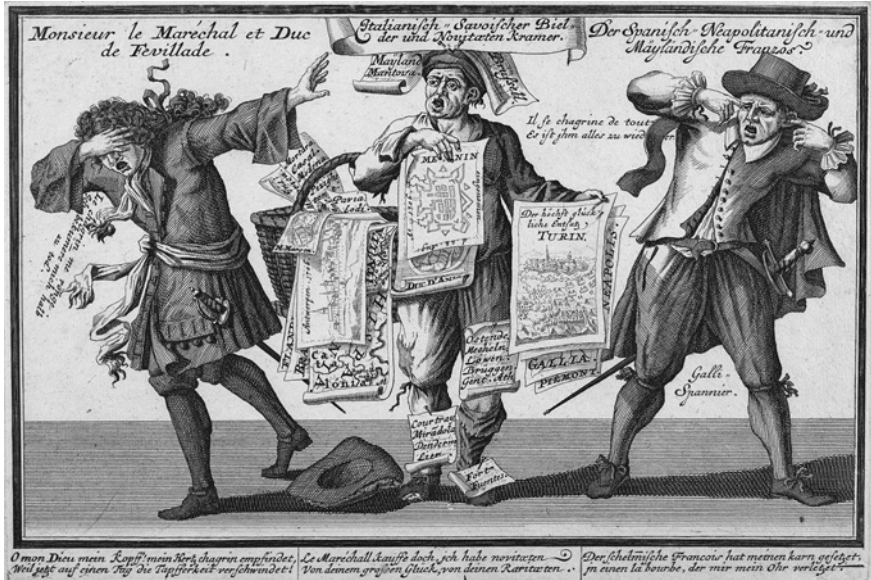 Monsieur le Maréchal et Duc
de Fevillade.
Italianisch-Savoischer Biel-
der und Novitæten kramer.
Der Spanisch-Neapolitanisch-und
Mäyländische Französ.
Mayland
Mantova.
Brüssel
Il se chagrine de tout
Es ist jhm alles zu wied er.
Le chagrin me
kümmre mich halb
zu tod.
Pavia
Lodi.
MENIN
Der höchst glück,
liche Entsatz,
TURIN.
NEAPOLIS.
GALLIA.
PIEMONT.
DUC D'ANJ
Antwerpen
Catalonia
Ostende
Mecheln
Löwen.
Brüggen
Gent. Ath
Courtray
Miradola
Dendrem
Lier
Fort
Fuentes.
Galli-
Spannier.
O mon Dieu mein Kopff! mein Hertz chagrin empfindet,
Weil jetzt auf einen Tag die Tapfferkeit verschwindet!
Le Maréchall kauffe doch, ich habe novitæten
Von deinem grossen Glück, von deinen Raritæten.
Der schelmische Francois hat meinen karn gesetzet,
jn einen la bourbe, der mir mein Ohr verletzet.